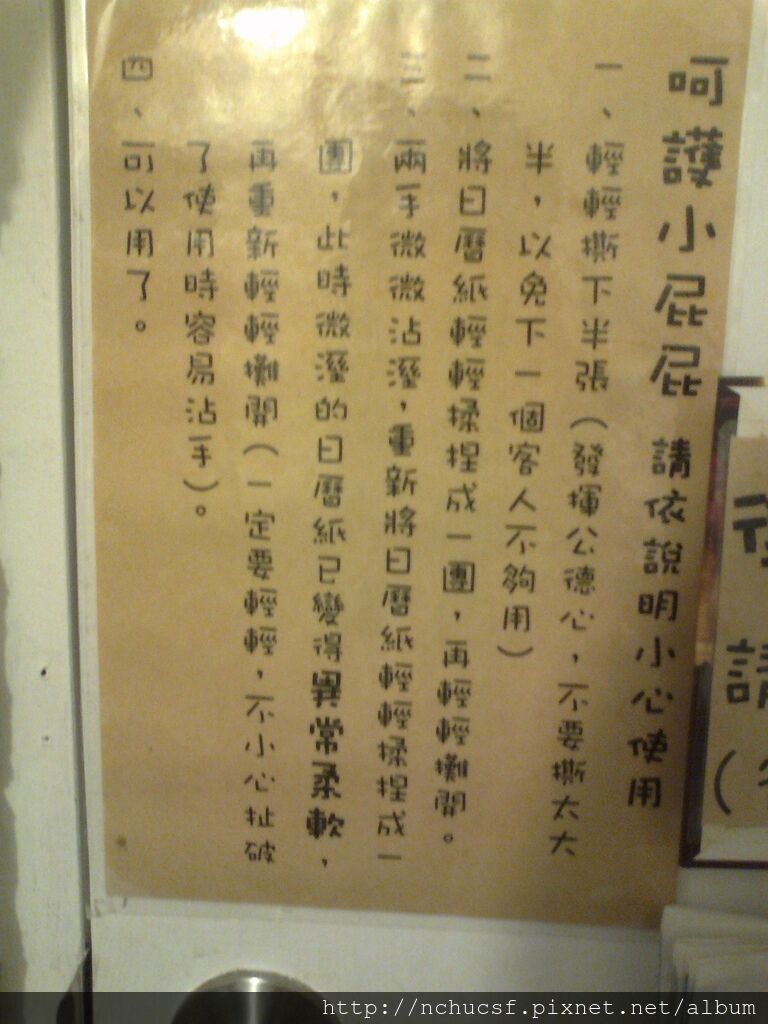 呵護小屁屁 請依說明小心使用
一、輕輕撕下半張（發揮公德心，不要撕太大
半，以免下一個客人不夠用）
二、將日曆紙輕輕揉捏成一團，再輕輕攤開。
三、兩手微微沾溼，重新將日曆紙輕輕揉捏成一
團，此時微溼的日曆紙已變得異常柔軟，
再重新輕輕攤開（一定要輕輕，不小心扯破
了使用時容易沾手）。
四、可以用了。
請
http://nchucsf.pixnet.net/album